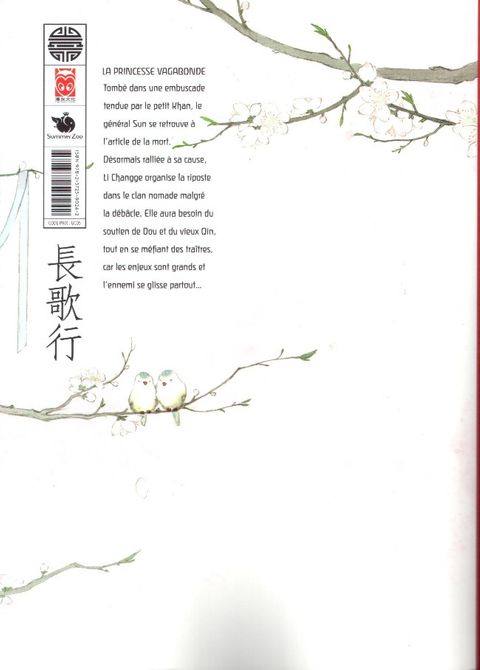 漫友文化
Summer Zoo
長歌行
LA PRINCESSE VAGABONDE
Tombé dans une embuscade
tendue par le petit Khan, le
général Sun se retrouve à
l'article de la mort.
Désormais ralliée à sa cause,
Li Changge organise la riposte
dans le clan nomade malgré
la débâcle. Elle aura besoin du
soutien de Dou et du vieux Qin,
tout en se méfiant des traîtres,
car les enjeux sont grands et
l'ennemi se glisse partout...